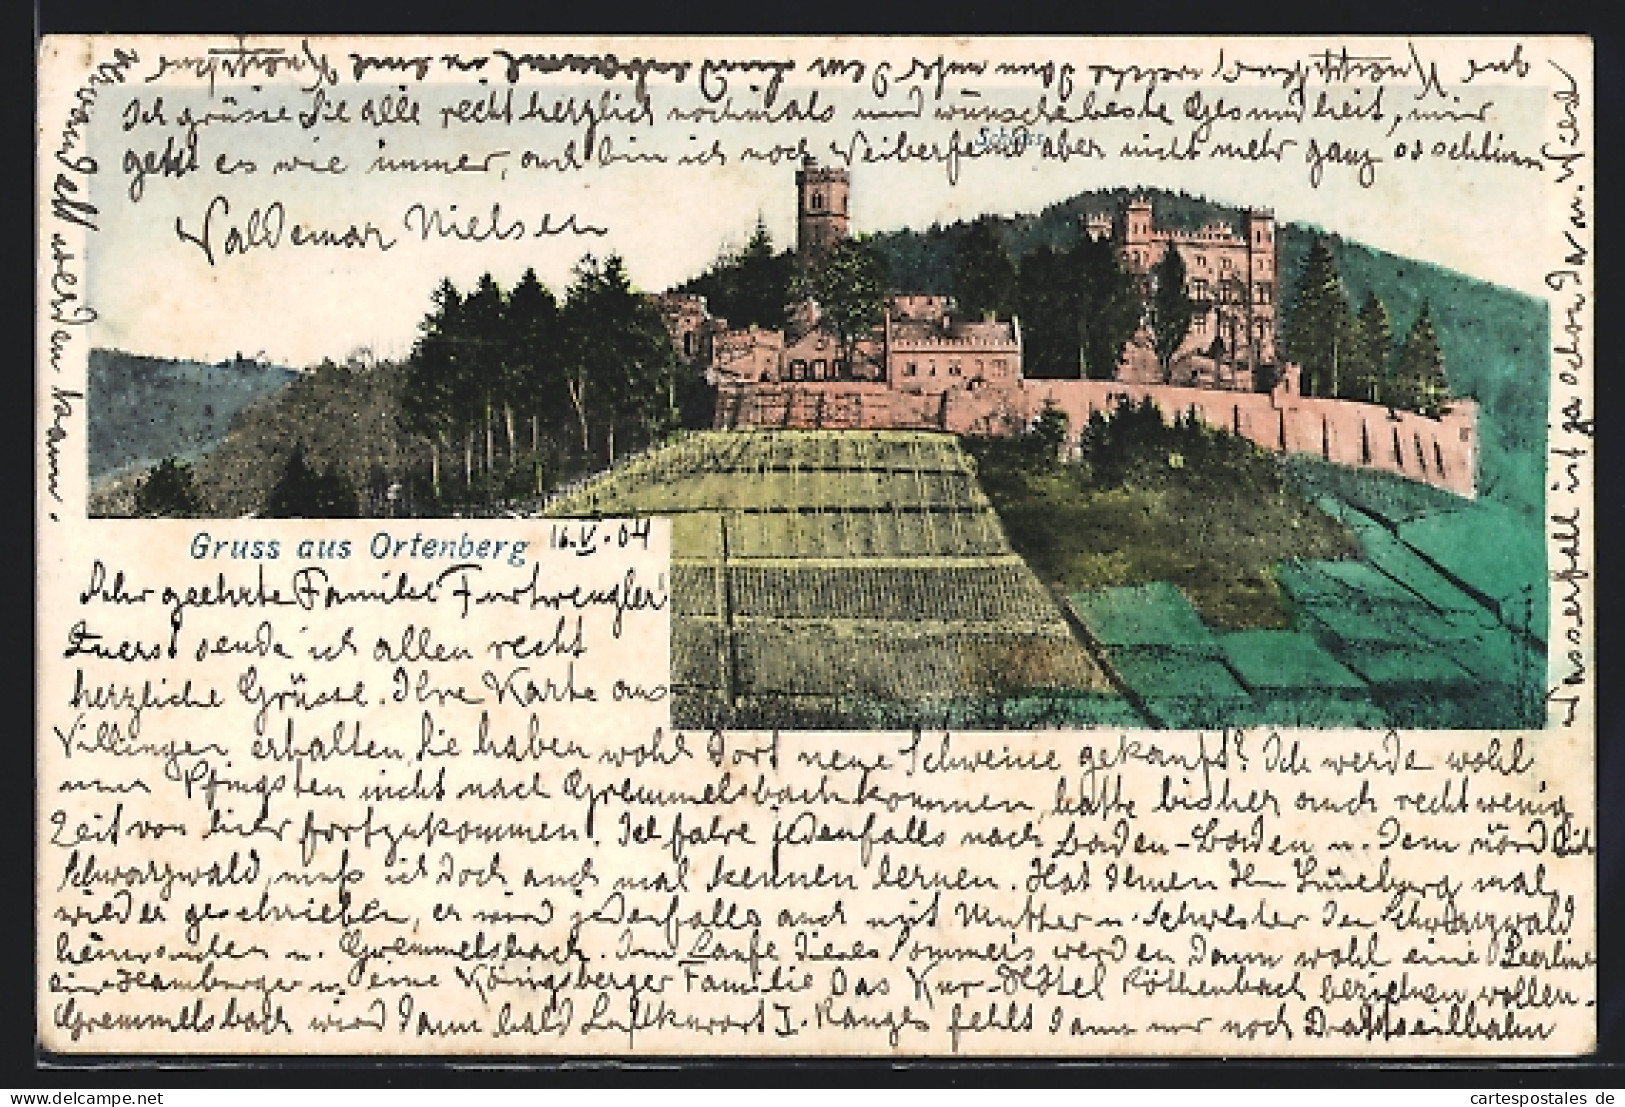 Gruss aus Ortenberg 16.V.04
Schloss
Sehr geehrte Familie Furtwengler!
Zuerst sende ich allen recht
herzliche Grüsse. Ihre Karte aus
Villingen erhalten, Sie haben wohl dort neue Schweine gekauft? Ich werde wohl
nun Pfingsten nicht nach Gremmelsbach kommen, hatte bisher auch recht wenig
Zeit von hier fortzukommen. Ich fahre jedenfalls nach Baden-Baden u. dem nördlich
Schwarzwald, muß ich doch auch mal kennen lernen. Hat denen Lüneberg mal
wieder geschrieben, er wird jedenfalls auch mit Mutter u. Schwester den Schwarzwald
u. Gremmelsbach. Im Laufe dieses Sommers werden dann wohl eine Berliner
eine Hamburger u. eine Königsberger Familie das Kur-Hôtel Röthenbach beziehen wollen.
Gremmelsbach wird dann bald Luftkurort I. Ranges fehlt dann nur noch Drahtseilbahn
Wasserfall ist ja schon da
und
werden kann.
Ich grüsse Sie alle recht herzlich nochmals und wünsche beste Gesundheit, mir
geht es wie immer, auch bin ich noch Weiberfeind aber nicht mehr ganz so schlimm
Waldemar Nielsen
cartespostales de